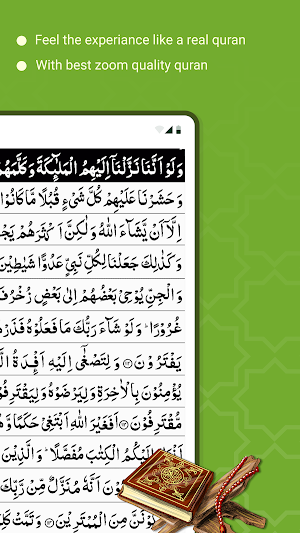 Feel the experiance like a real quran
With best zoom quality quran
وَلَوۡ اَنَّنَا نَزَّلۡنَاۤ اِلَيۡهِمُ الۡمَلٰٓئِكَةَ وَكَلَّمَهُمُ
وَحَشَرۡنَا عَلَيۡهِمۡ كُلَّ شَىۡءٍ قُبُلًا مَّا كَانُوۡا
اِلَّاۤ اَنۡ يَّشَآءَ اللّٰهُ وَلٰكِنَّ اَكۡثَرَهُمۡ
وَكَذٰلِكَ جَعَلۡنَا لِكُلِّ نَبِىٍّ عَدُوًّا شَيٰطِيۡنَ
وَالۡجِنِّ يُوۡحِىۡ بَعۡضُهُمۡ اِلٰى بَعۡضٍ زُخۡرُفَ
غُرُوۡرًا ؕ وَلَوۡ شَآءَ رَبُّكَ مَا فَعَلُوۡهُ فَذَرۡهُمۡ
يَفۡتَرُوۡنَ ‏﴿۱۱۲﴾ وَلِتَصۡغٰٓى اِلَيۡهِ اَفۡـِٕدَةُ
يُؤۡمِنُوۡنَ بِالۡاٰخِرَةِ وَلِيَرۡضَوۡهُ وَلِيَقۡتَرِفُوۡا
مُّقۡتَرِفُوۡنَ ‏﴿۱۱۳﴾ اَفَغَيۡرَ اللّٰهِ اَبۡتَغِىۡ حَكَمًا
اِلَيۡكُمُ الۡكِتٰبَ مُفَصَّلًا ؕ وَالَّذِيۡنَ
اَنَّهٗ مُنَزَّلٌ مِّنۡ رَّبِّكَ
مِنَ الۡمُمۡتَرِيۡنَ ‏﴿۱۱۴﴾ وَتَمَّتۡ